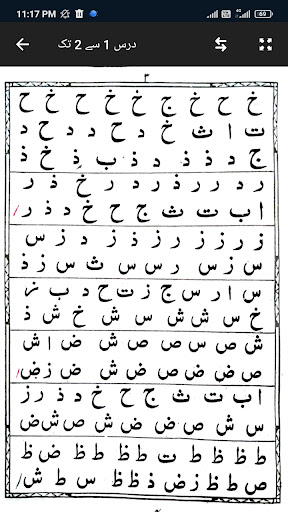 11:17 PM 69
درس 1 سے 2 تک
٣
خ ح خ ج خ خ ح خ ح
ت ا ث خ د ح د د ح د
ج د ذ ذ د ذ ب ذ خ ذ
ر د ر ر ذ ر د ر خ ذ ر
ا ب ت ث ج ح خ د ذ ر
ز ر ز ر ز ر ذ ز د ز س
س ز س ر س س ث س ز ذ
س ا ر س ج ز ت ح د ب ز
خ س ش ش س ش خ ش ذ
ش ص س ص ش ص ض ا ش
ص ض ص ض ص ض ش ض ز ض
ا ب ت ث ج ح خ د ذ ر ز
س ش ص ض ص ض ش ص ش ض
ط ظ ظ ط ت ط ظ ط ظ ض ظ
ص ط ظ ز ض ذ ظ ظ س ط ش